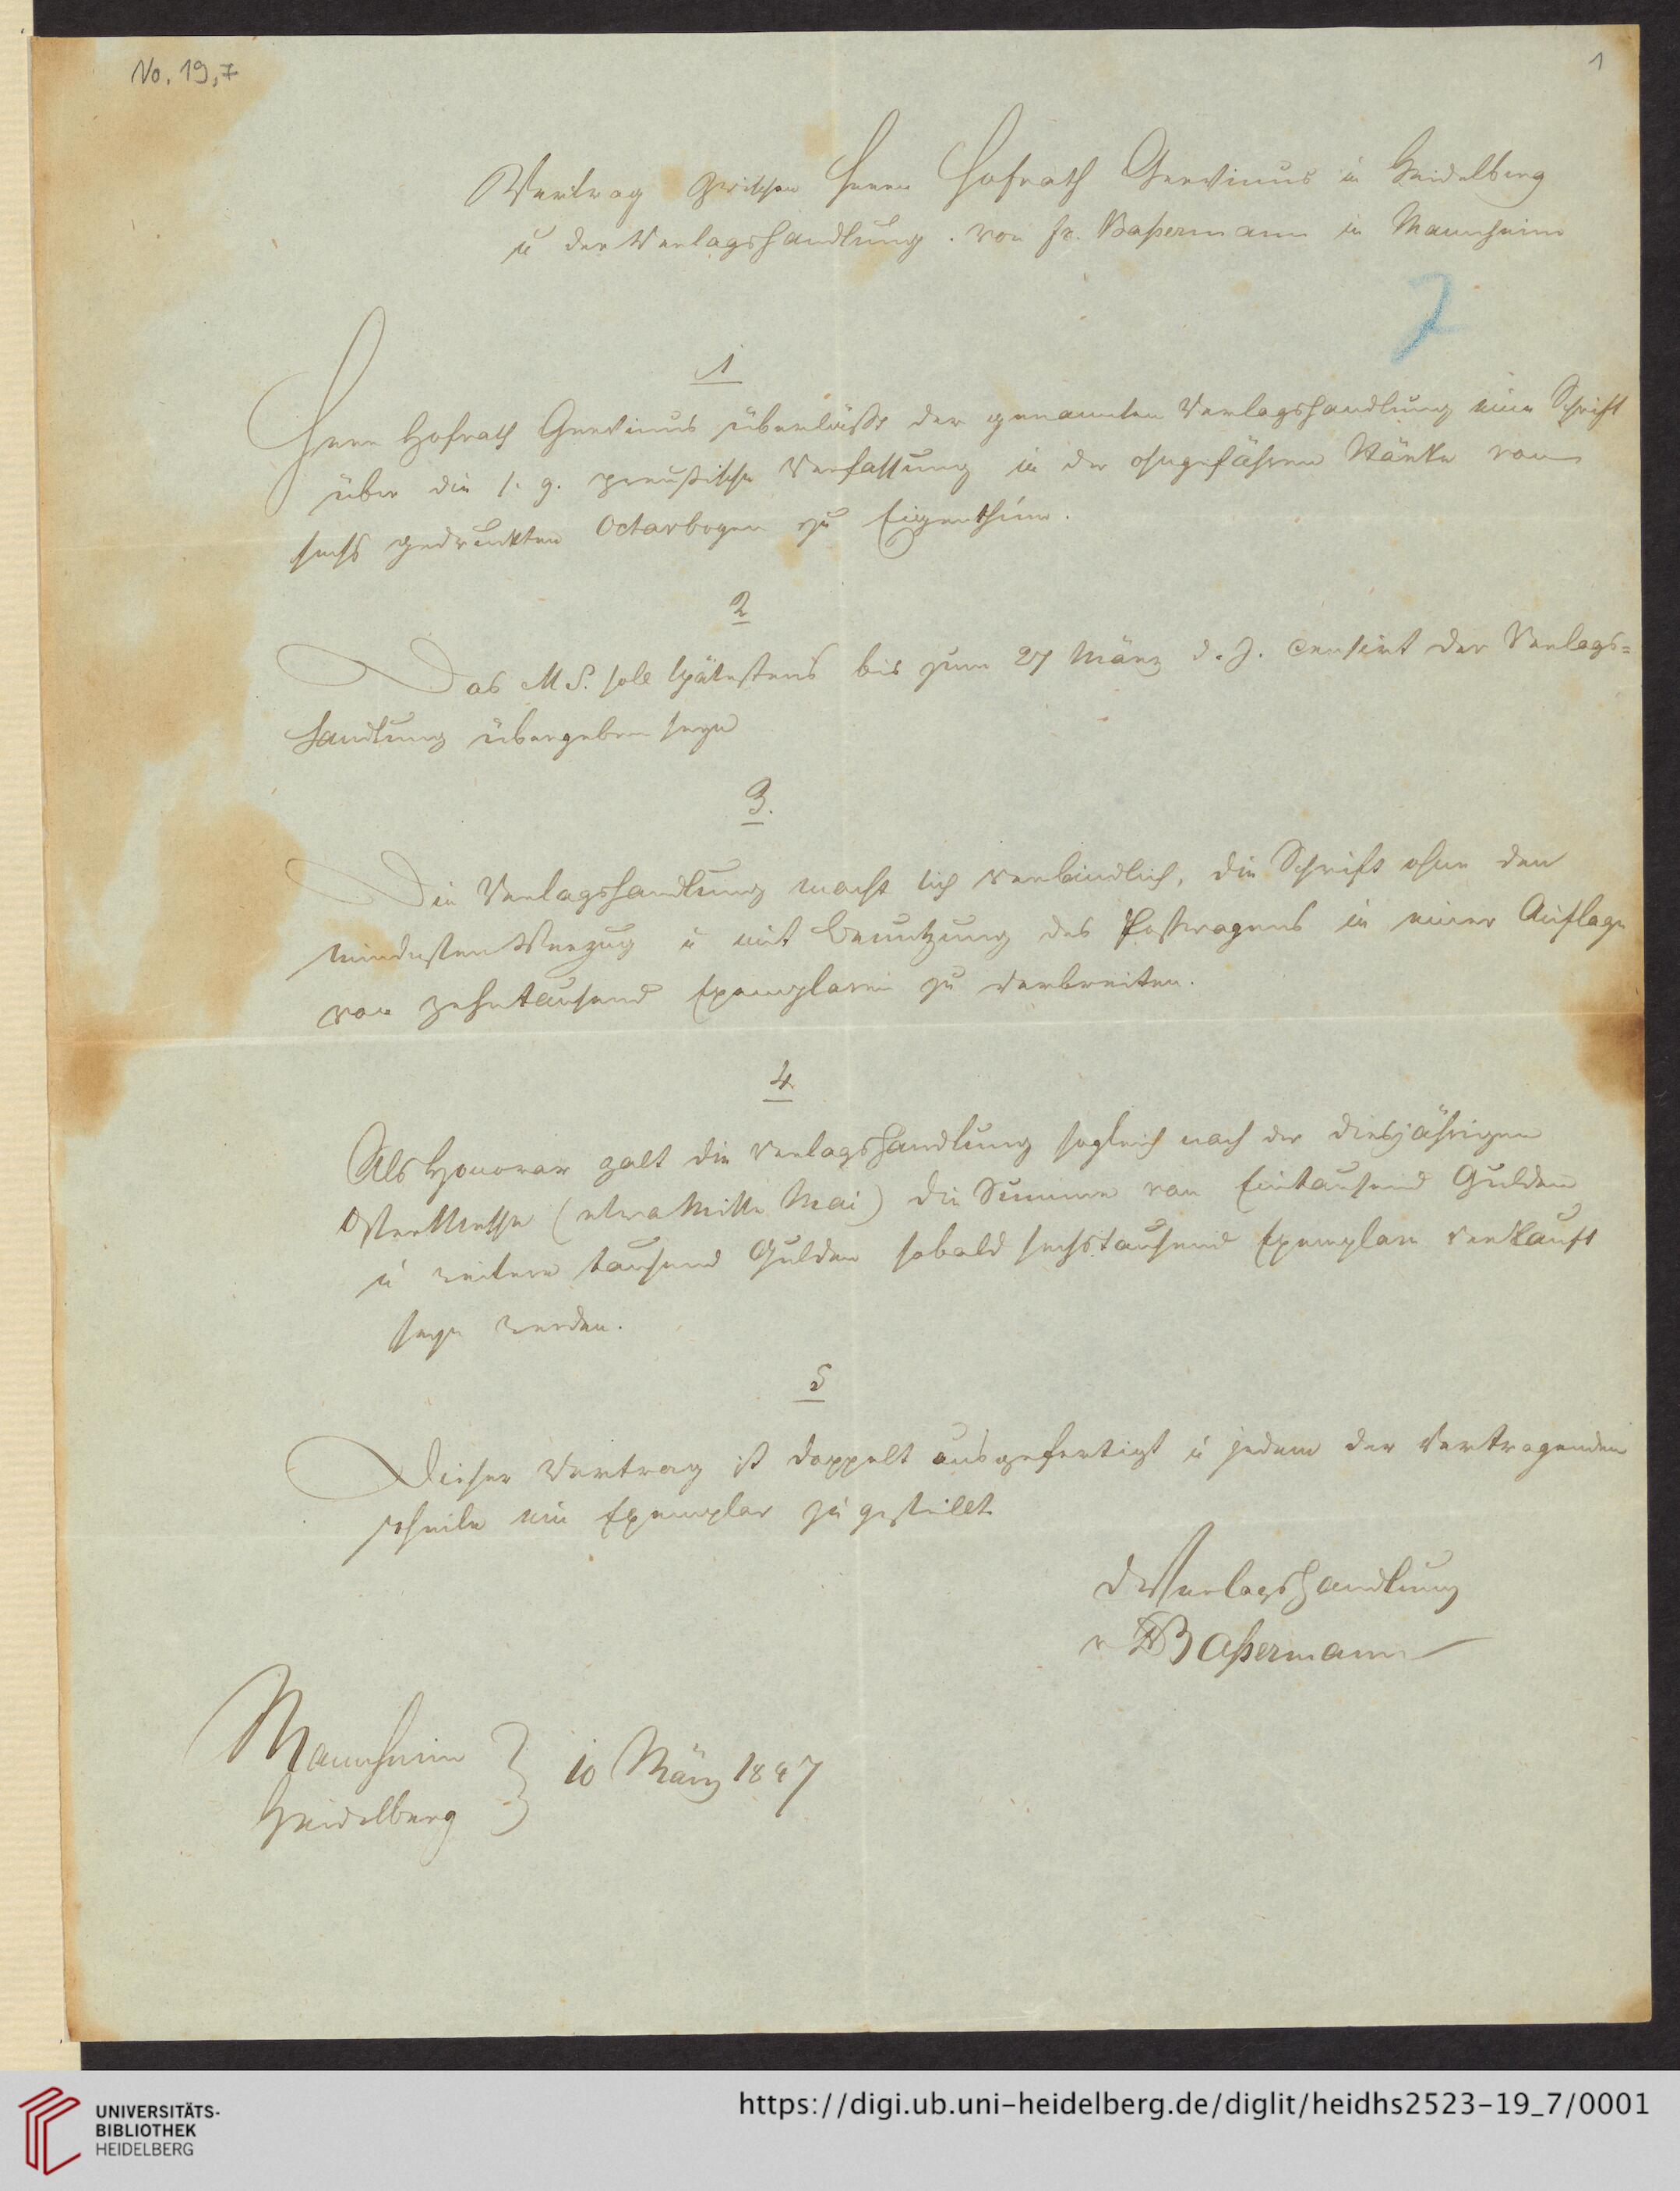 No. 19,7
1
Vertrag zwischen Herrn Hofrath Gervinus in Heidelberg
u der Verlagshandlung von Fr. Baßermann in Mannheim
7
1
Herr Hofrath Gervinus überläßt der genannten Verlagshandlung eine Schrift
über die s. g. preußische Verfassung in der ohngefähren Stärke von
sechs gedruckten Octavbogen zu Eigenthum.
2
Das M S. soll spätestens bis zum 27 März d. J. censirt der Verlags=
handlung übergeben seyn
3.
Die Verlagshandlung macht sich verbindlich, die Schrift ohne den
mindesten Verzug u mit Benutzung des Postwagens in einer Auflage
von zehntausend Exemplaren zu verbreiten.
4
Als Honorar zalt die Verlagshandlung sogleich nach der diesjährigen
OsterMesse (etwa Mitte Mai) die Summe von Eintausend Gulden
u weitere tausend Gulden sobald sechstausend Exemplare verkauft
seyn werden.
5
Dieser Vertrag ist doppelt ausgefertigt u jedem der vertragenden
Theile ein Exemplar zugestellt.
d Verlagshandlung
v Fr Baßermann
Mannheim
Heidelberg } 10 März 1847
UNIVERSITÄTS-
BIBLIOTHEK
HEIDELBERG
https://digi.ub.uni-heidelberg.de/diglit/heidhs2523-19_7/0001